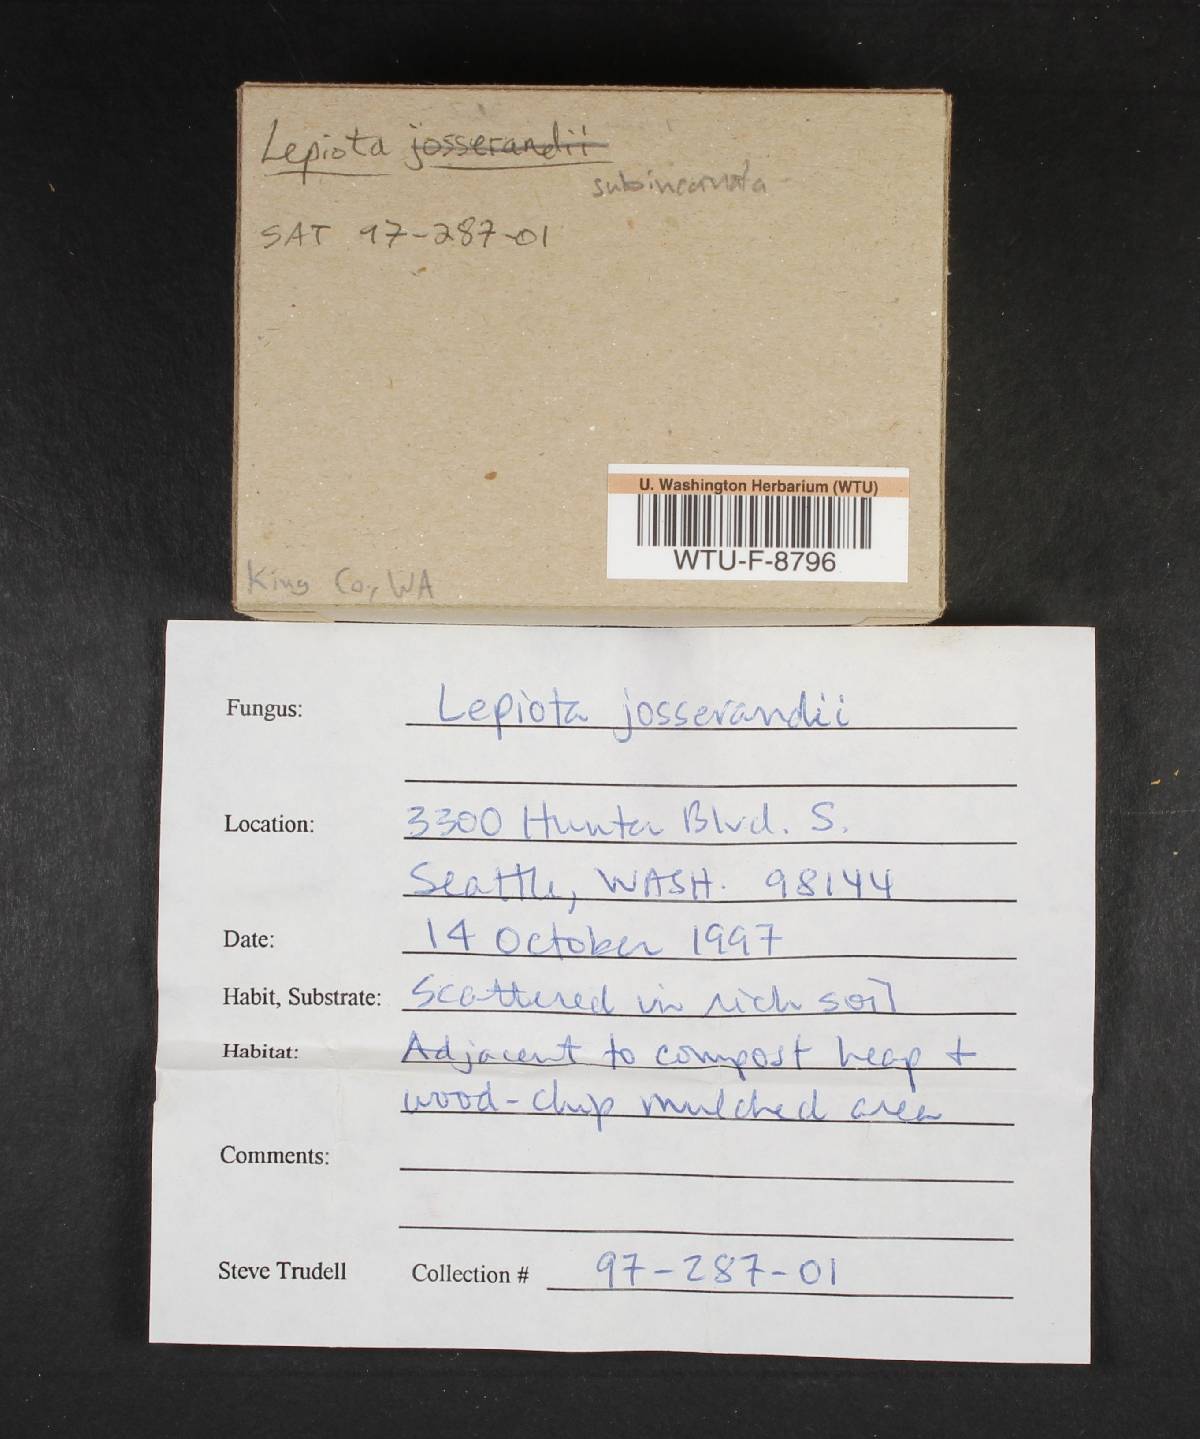 Lepiota josserandii
subincarnata
SAT 97-287-01
U. Washington Herbarium (WTU)
WTU-F-8796
King Co., WA
Fungus: Lepiota josserandii
Location: 3300 Hunter Blvd. S.
Seattle, WASH. 98144
Date: 14 October 1997
Habit, Substrate: Scattered in rich soil
Habitat: Adjacent to compost heap +
wood-chip mulched area
Comments:
Steve Trudell Collection # 97-287-01